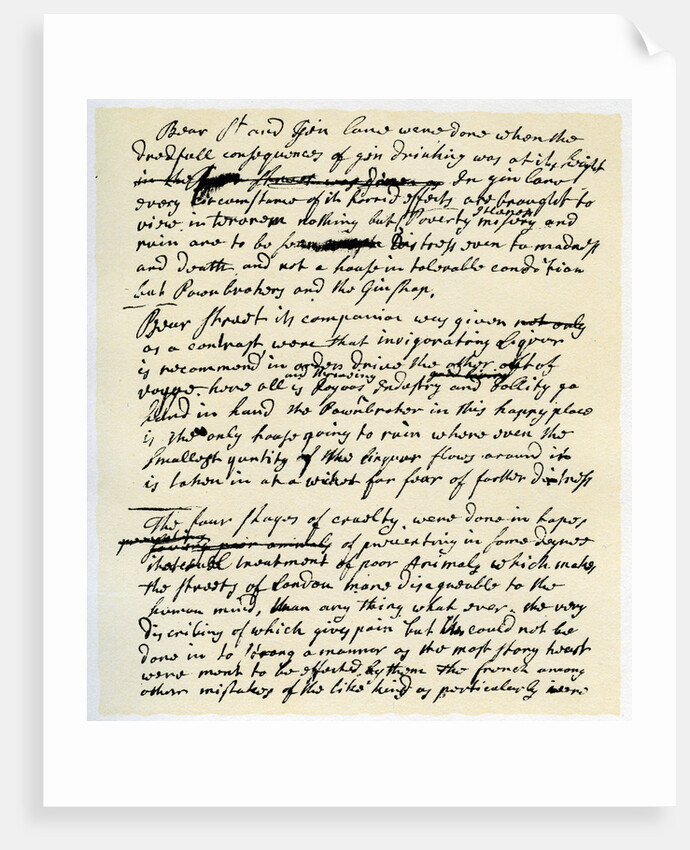 Bear St and Gin lane were done when the
dredfull consequences of gin drinking was at its height
in the In gin lane
every circumstance of its horrid effects are brought to
view in terorem nothing but Poverty misery and
ruin are to be seen Distress even to madness
and death and not a house in tolerable condition
but Pawnbrokers and the Ginshop.
Bear Street its companion was given not only
as a contrast were that invigorating liquor
is recommend in order drive the other out of
and thriveing
vogue. here all is Joyous Industry and Jollity go
hand in hand the Pawnbroker in this happy place
is the only house going to ruin where even the
smallest quntity of the linquer flows around it
is taken in at a wicket for fear of farther distress
The four stages of cruelty were done in hopes
of preventing in some degree
cruel treatment of poor Animals which makes
the streets of London more disagreable to the
human mind, than any thing what ever. the very
discribing of which gives pain but could not be
done in to strong a manner as the most stony heart
were ment to be effected by them the french among
other mistakes of the like kind as particularly were